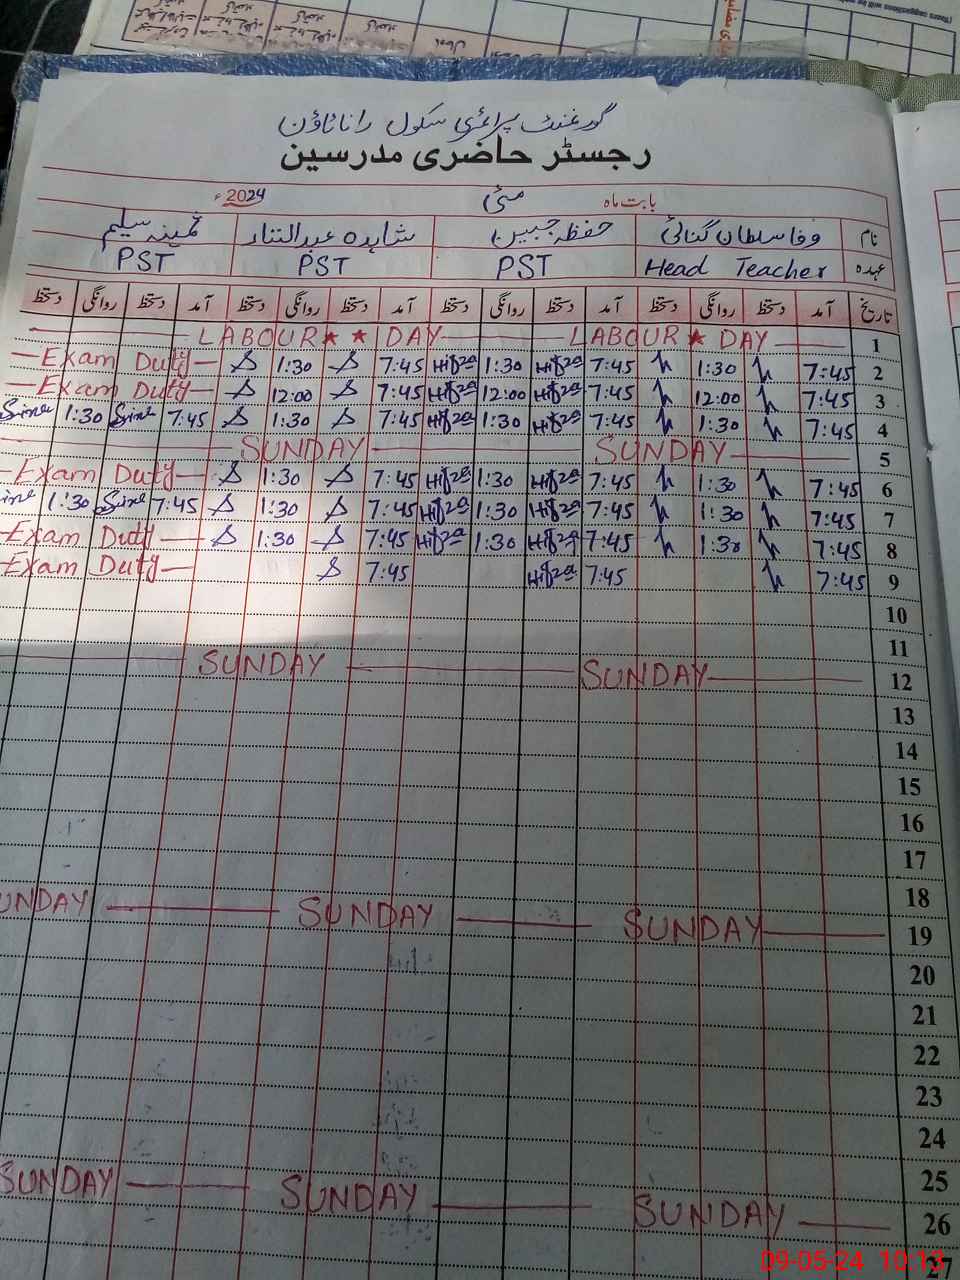 گورنمنٹ پرائمری سکول رانا ٹاؤن
رجسٹر حاضری مدرسین
بابت ماہ مئی 2024ء
نام وفا سلطان گنائی حفظہ جبین شاہدہ عبدالستار ثمینہ سلیم
عہدہ Head Teacher PST PST PST
تاریخ آمد دستخط روانگی دستخط آمد دستخط روانگی دستخط آمد دستخط روانگی دستخط آمد دستخط روانگی دستخط
LABOUR ★ ★ DAY LABOUR ★ DAY 1
Exam Duty 1:30 7:45 Hifza 1:30 Hifza 7:45 1:30 7:45 2
Exam Duty 12:00 7:45 Hifza 12:00 Hifza 7:45 12:00 7:45 3
1:30 7:45 1:30 7:45 Hifza 1:30 Hifza 7:45 1:30 7:45 4
SUNDAY SUNDAY 5
Exam Duty 1:30 7:45 Hifza 1:30 Hifza 7:45 1:30 7:45 6
1:30 7:45 1:30 7:45 Hifza 1:30 Hifza 7:45 1:30 7:45 7
Exam Duty 1:30 7:45 Hifza 1:30 Hifza 7:45 1:30 7:45 8
Exam Duty 7:45 Hifza 7:45 7:45 9
10
11
SUNDAY SUNDAY 12
13
14
15
16
17
18
SUNDAY SUNDAY SUNDAY 19
20
21
22
23
24
25
SUNDAY SUNDAY SUNDAY 26
27
09-05-24 10:13